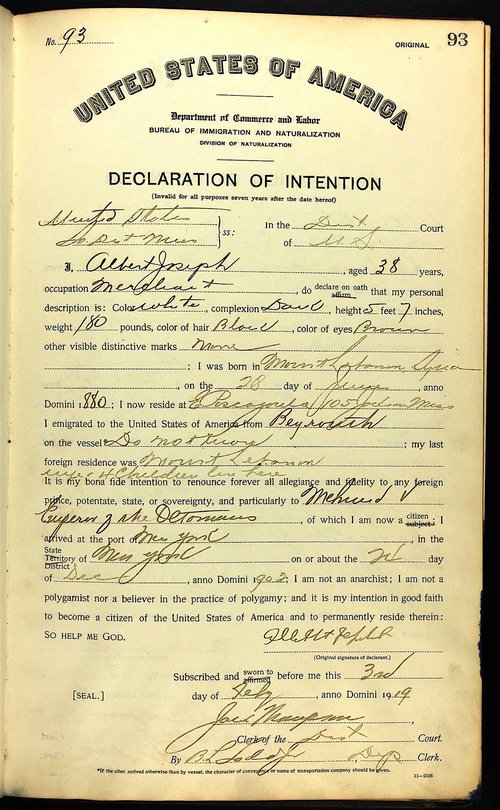 No. 93 ORIGINAL 93
UNITED STATES OF AMERICA
Department of Commerce and Labor
BUREAU OF IMMIGRATION AND NATURALIZATION
DIVISION OF NATURALIZATION
DECLARATION OF INTENTION
(Invalid for all purposes seven years after the date hereof)
United States In the Dist Court
So Dist Miss ss: of U.S.
I, Albert Joseph, aged 38 years,
occupation Merchant, do declare on oath affirm that my personal
description is: Color white, complexion Dark, height 5 feet 7 inches,
weight 180 pounds, color of hair, color of eyes Brown
other visible distinctive marks None
: I was born in Mount Lebanon Syria
, on the 28 day of, anno
Domini 1880; I now reside at Miss
I emigrated to the United States of America from Beyrouth
on the vessel* Do not know; my last
foreign residence was Mount Lebanon
wife & Children live here
It is my bona fide intention to renounce forever all allegiance and fidelity to any foreign
prince, potentate, state, or sovereignty, and particularly to Mehmed V
Emperor of the Ottomans, of which I am now a citizen subject; I
arrived at the port of New York, in the
State Territory District of New York on or about the day
of Dec, anno Domini 1902; I am not an anarchist; I am not a
polygamist nor a believer in the practice of polygamy; and it is my intention in good faith
to become a citizen of the United States of America and to permanently reside therein:
SO HELP ME GOD.
(Original signature of declarant.)
Subscribed and sworn to affirmed before me this 3rd
[SEAL.] day of Feby, anno Domini 1919
Clerk of the Dist Court.
By Dep Clerk.
*If the alien arrived otherwise than by vessel, the character of conveyance or name of transportation company should be given. 11—2526